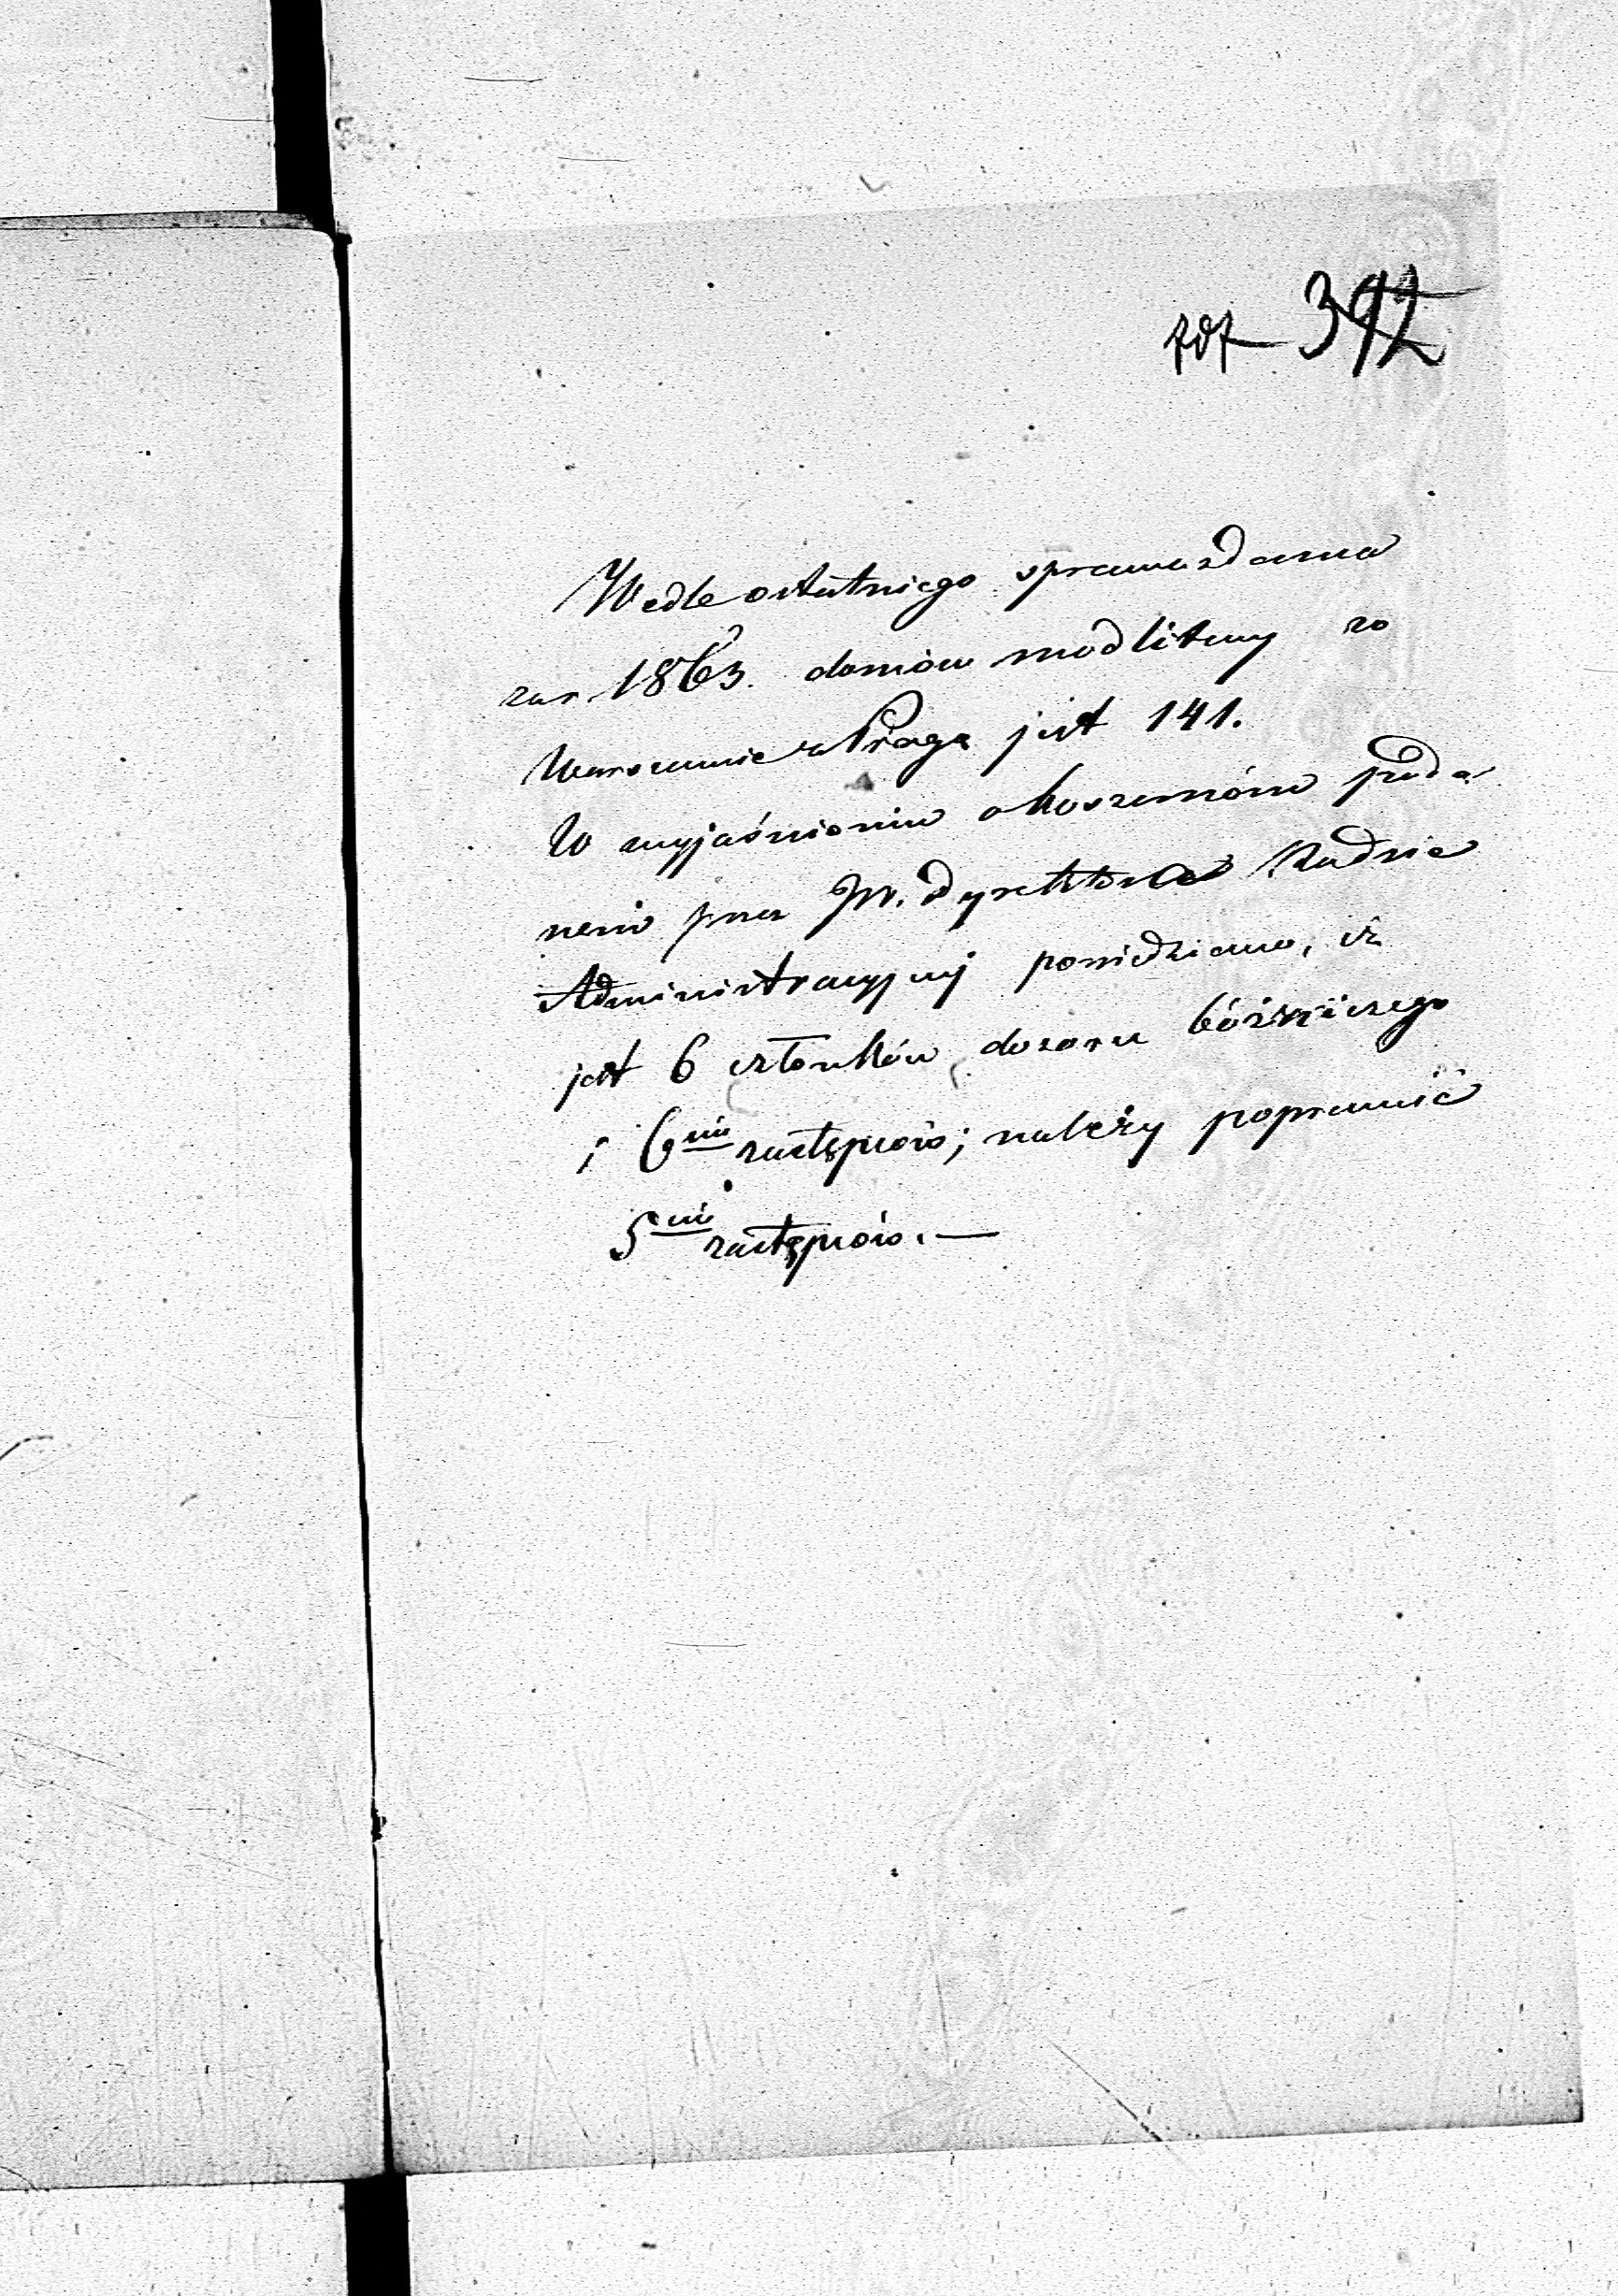 392
Wedle ostatniego sprawozdania
za r. 1863. domów modlitwy w
Warszawie z Pragą jest 141.
W wyjaśnieniu o koszernóm poda-
nem przez JW. Dyrektora Radzie
Administracyjnej powiedziano, iż
jest 6 członków dozoru bóżniczego
i 6ciu zastępców; należy poprawić
5ciu zastępców. —